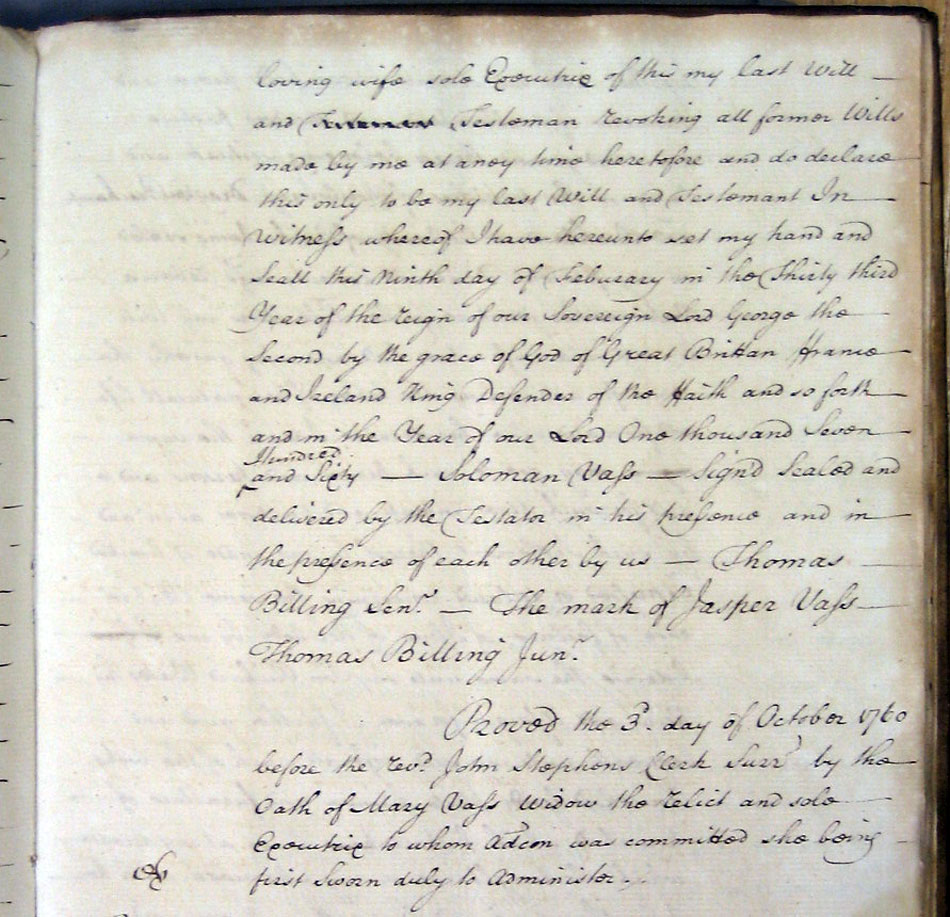 loving wife sole Executrix of this my last Will
and Testeman revoking all former Wills
made by me at aney time heretofore and do declare
this only to be my last Will and Testemant In
Witness whereof I have hereunto set my hand and
Seall this Ninth day of Feburary in the Thirty third
Year of the reign of our Sovereign Lord George the
Second by the grace of God of Great Brittan France
and Ireland King Defender of the Faith and so forth
and in the Year of our Lord One thousand Seven
Hundred
and Sixty — Soloman Vass — Sign'd Sealed and
delivered by the Testator in his presence and in
the presence of each other by us — Thomas
Billing Senr. — The mark of Jasper Vass
Thomas Billing Junr.
Proved the 3d. day of October 1760
before the Revd. John Stephens Clerk Surr. by the
Oath of Mary Vass Widow the relict and sole
Executrix to whom Adcon was committed she being
first Sworn duly to Administer.